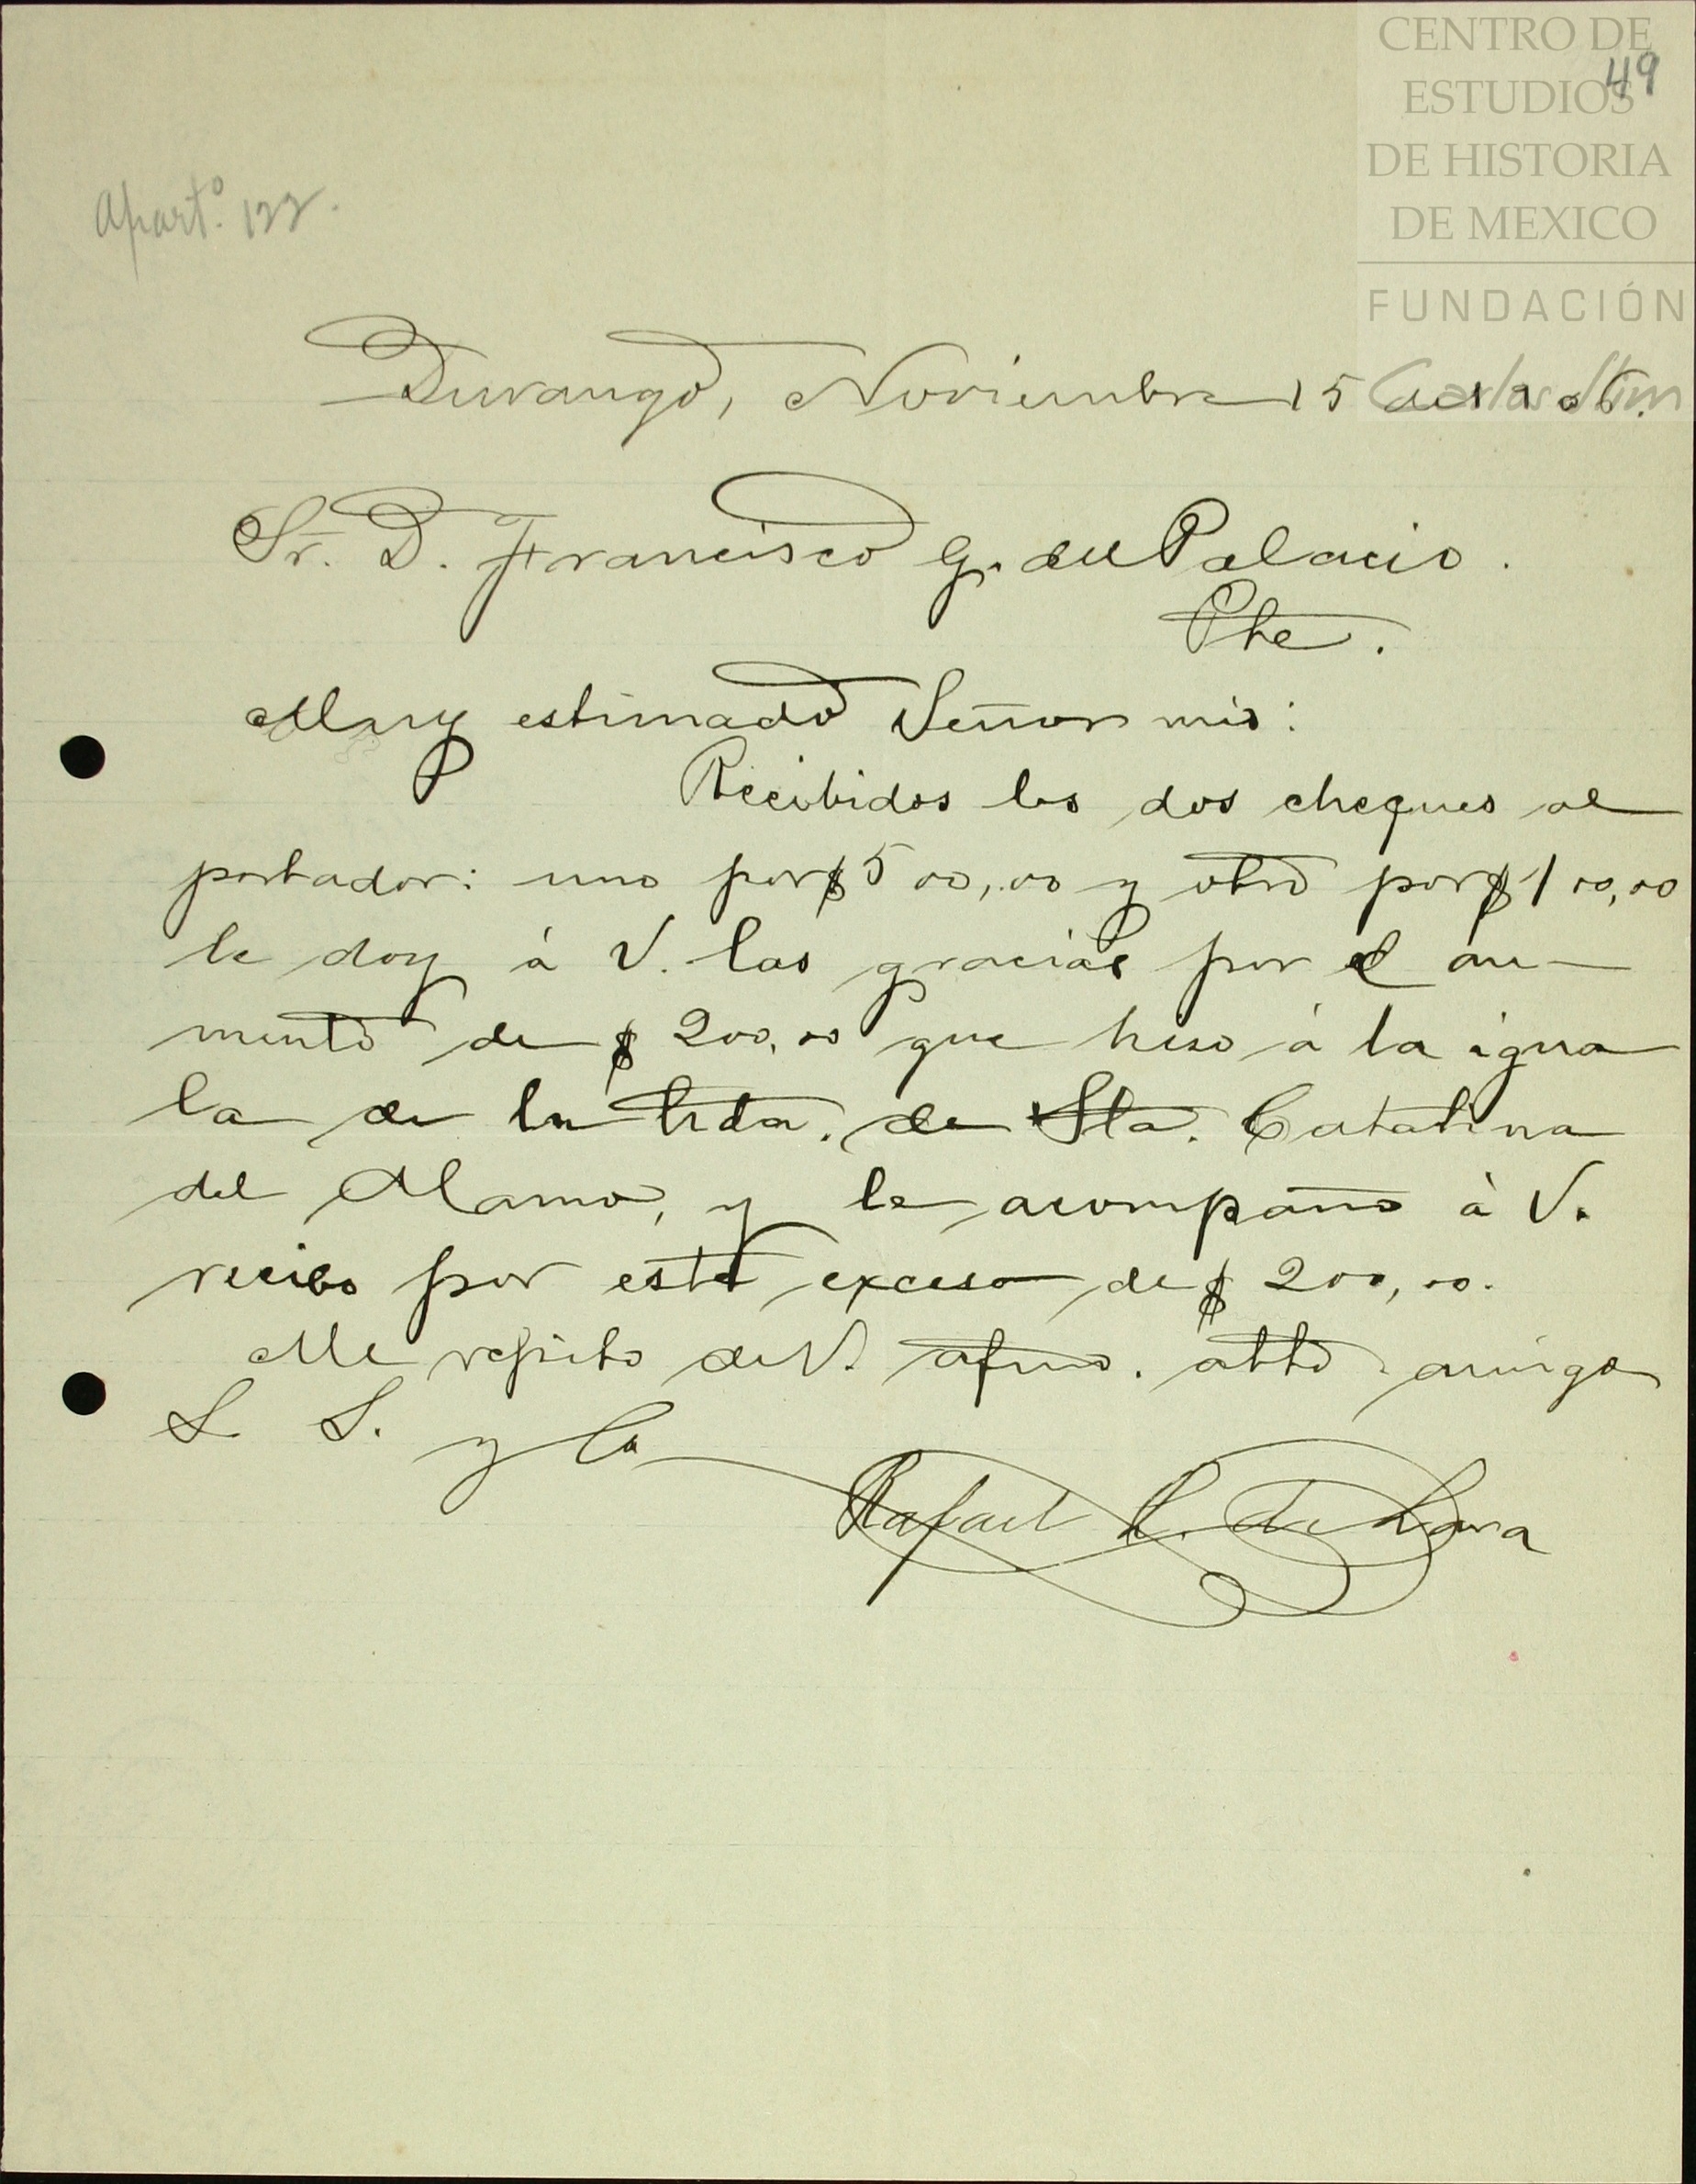 CENTRO DE
ESTUDIOS
DE HISTORIA
DE MEXICO
FUNDACIÓN
Carlos Slim
49
Apart.º 122.
Durango, Noviembre 15 de 1906.
Sr. D. Francisco G. del Palacio.
Pte.
Muy estimado Señor mio:
Recibidos los dos cheques al
portador: uno por $500,00 y otro por $100,00
le doy á V. las gracias por el au-
mento de $200,00 que hiso á la igua
la de la Hda. de Sta. Catalina
del Alamo, y le acompaño à V.
recibo por este exceso de $200,00.
Me repito de V. afmo. atto. amigo
S. S. y C.
Rafael L. de Lara